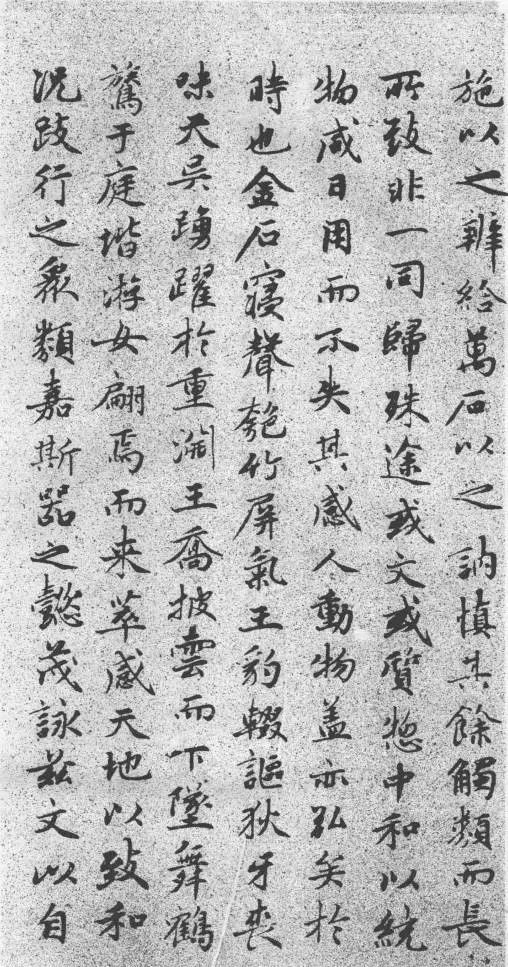 施以之辨給萬石以之訥慎其餘觸類而長
所致非一同歸殊途或文或質揔中和以統
物咸日用而不失其感人動物盖亦弘矣於
時也金石寢聲匏竹屏氣王豹輟謳狄牙喪
味天吳踴躍於重淵王喬披雲而下墜舞鶴
鷟于庭堦游女翩焉而来萃感天地以致和
況跂行之衆類嘉斯器之懿茂詠茲文以自